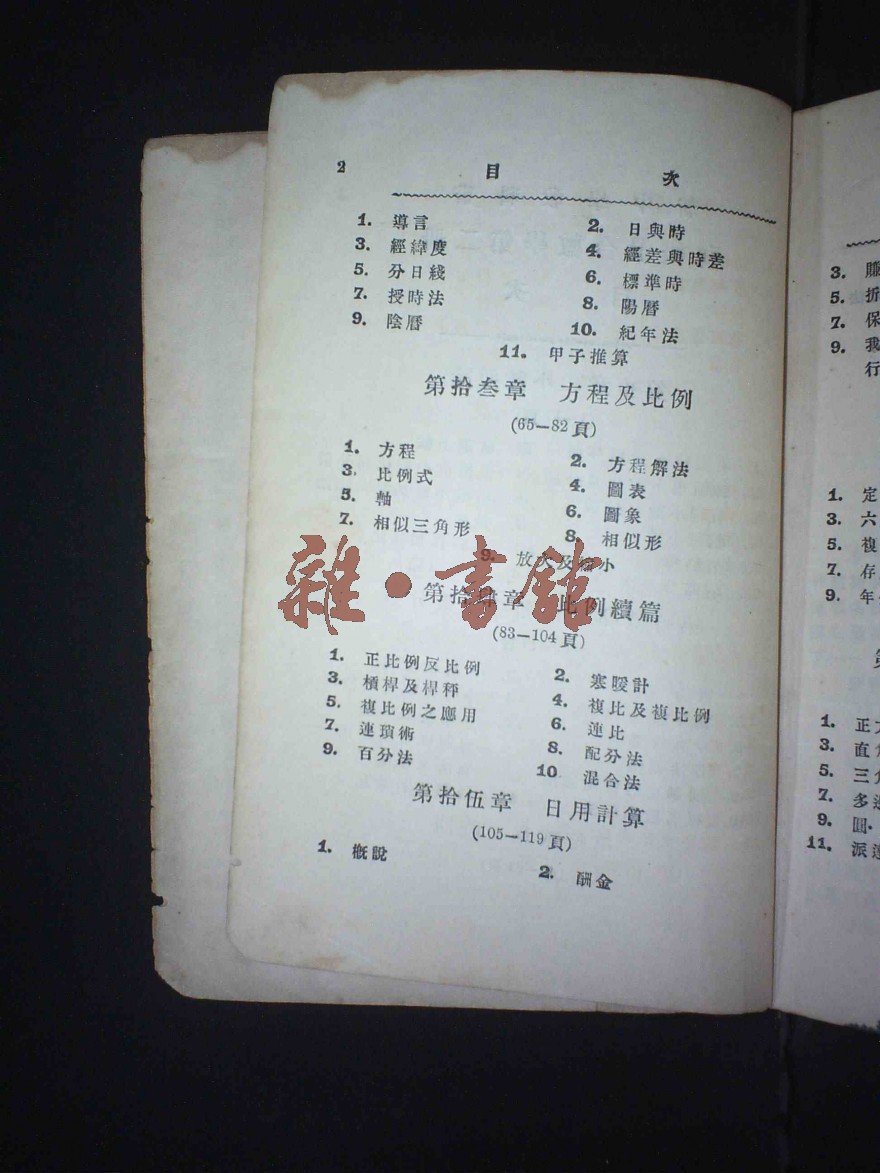 2 目 次
1. 導言 2. 日與時
3. 經緯度 4. 經差與時差
5. 分日綫 6. 標準時
7. 授時法 8. 陽曆
9. 陰曆 10. 紀年法
11. 甲子推算
第拾叁章 方程及比例
(65—82頁)
1. 方程 2. 方程解法
3. 比例式 4. 圖表
5. 軸 6. 圖象
7. 相似三角形 8. 相似形
9. 放大及縮小
雜·書館
第拾肆章 比例續篇
(83—104頁)
1. 正比例反比例 2. 寒暖計
3. 槓桿及桿秤 4. 複比及複比例
5. 複比例之應用 6. 連比
7. 連瑣術 8. 配分法
9. 百分法 10 混合法
第拾伍章 日用計算
(105—119頁)
1. 概說 2. 酬金
3.
5. 折
7. 保
9. 我
行
1. 定
3. 六
5. 複
7. 存
9. 年
1. 正
3. 直
5. 三
7. 多
9. 圓
11. 派